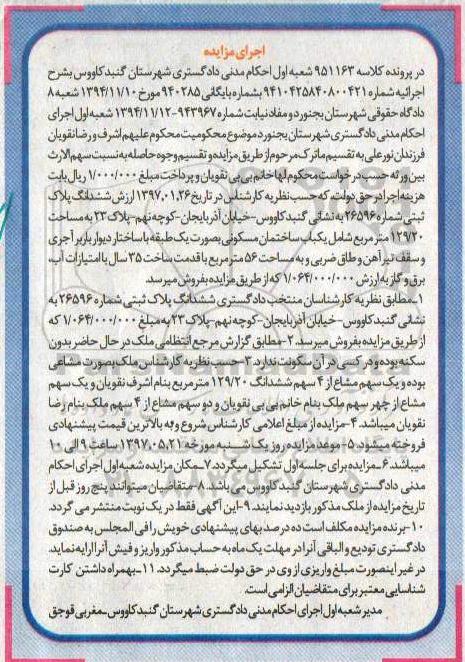 اجرای مزایده
در پرونده کلاسه ۹۵۱۱۶۳ شعبه اول احکام مدنی دادگستری شهرستان گنبدکاووس بشرح
اجرائیه شماره ۹۴۱۰۴۲۵۸۴۰۸۰۰۴۲۱ بشماره بایگانی ۹۴۰۲۸۵ مورخ ۱۳۹۴/۱۱/۱۰ شعبه ۸
دادگاه حقوقی شهرستان بجنورد و مفاد نیابت شماره ۹۴۳۹۶۷-۱۳۹۴/۱۱/۱۲ شعبه اول اجرای
احکام مدنی دادگستری شهرستان بجنورد موضوع محکومیت محکوم علیهم اشرف و رضا نقویان
فرزندان نورعلی به تقسیم ماترک مرحوم از طریق مزایده و تقسیم وجوه حاصله به نسبت سهم الارث
بین ورثه حسب درخواست محکوم لها خانم بی بی نقویان و پرداخت مبلغ ۱/۰۰۰/۰۰۰ ریال بابت
هزینه اجرا در حق دولت که حسب نظریه کارشناس در تاریخ ۱۳۹۷,۰۱,۲۶ ارزش ششدانگ پلاک
ثبتی شماره ۲۶۵۹۶ به نشانی گنبدکاووس -خیابان آذربایجان -کوچه نهم-پلاک ۲۳ به مساحت
۱۲۹/۲۰ متر مربع شامل یکباب ساختمان مسکونی بصورت یک طبقه با ساختار دیوار باربر آجری
و سقف تیرآهن و طاق ضربی و به مساحت ۵۶ متر مربع با قدمت ساخت ۳۵ سال با امتیازات آب،
برق و گاز به ارزش ۱/۰۶۴/۰۰۰/۰۰۰ که از طریق مزایده بفروش میرسد.
۱-مطابق نظریه کارشناسان منتخب دادگستری ششدانگ پلاک ثبتی شماره ۲۶۵۹۶ به
نشانی گنبدکاووس- خیابان آذربایجان-کوچه نهم- پلاک ۲۳ به مبلغ ۱/۰۶۴/۰۰۰/۰۰۰ که
از طریق مزایده بفروش میرسد. ۲-مطابق گزارش مرجع انتظامی ملک در حال حاضر بدون
سکنه بوده و در کسی در آن سکونت ندارد. ۳-حسب نظریه کارشناس ملک بصورت مشاعی
بوده و یک سهم مشاع از ۴ سهم ششدانگ ۱۲۹/۲۰ مترمربع بنام اشرف نقویان و یک سهم
مشاع از چهر سهم ملک بنام خانم بی بی نقویان و دو سهم مشاع از ۴ سهم ملک بنام رضا
نقویان میباشد. ۴-مزایده از مبلغ اعلامی کارشناس شروع و به بالاترین قیمت پیشنهادی
فروخته میشود. ۵-موعد مزایده روز یک شنبه مورخه ۱۳۹۷,۰۵,۲۱ ساعت ۹ الی ۱۰
میباشد. ۶-مزایده برای جلسه اول تشکیل میگردد. ۷-مکان مزایده شعبه اول اجرای احکام
مدنی دادگستری شهرستان گنبدکاووس می باشد. ۸-متقاضیان میتوانند پنج روز قبل از
تاریخ مزایده از ملک مذکور بازدید نمایند. ۹-این آگهی فقط در یک نوبت منتشر می گردد.
۱۰-برنده مزایده مکلف است ده درصد بهای پیشنهادی خویش را فی المجلس به صندوق
دادگستری تودیع و الباقی آنرا در مهلت یک ماه به حساب مذکور واریز و فیش آنرا ارایه نماید.
در غیر اینصورت مبلغ واریزی از وی در حق دولت ضبط میگردد. ۱۱-بهمراه داشتن کارت
شناسایی معتبر برای متقاضیان الزامی است.
مدیر شعبه اول اجرای احکام مدنی دادگستری شهرستان گنبدکاووس-مغربی قوجق